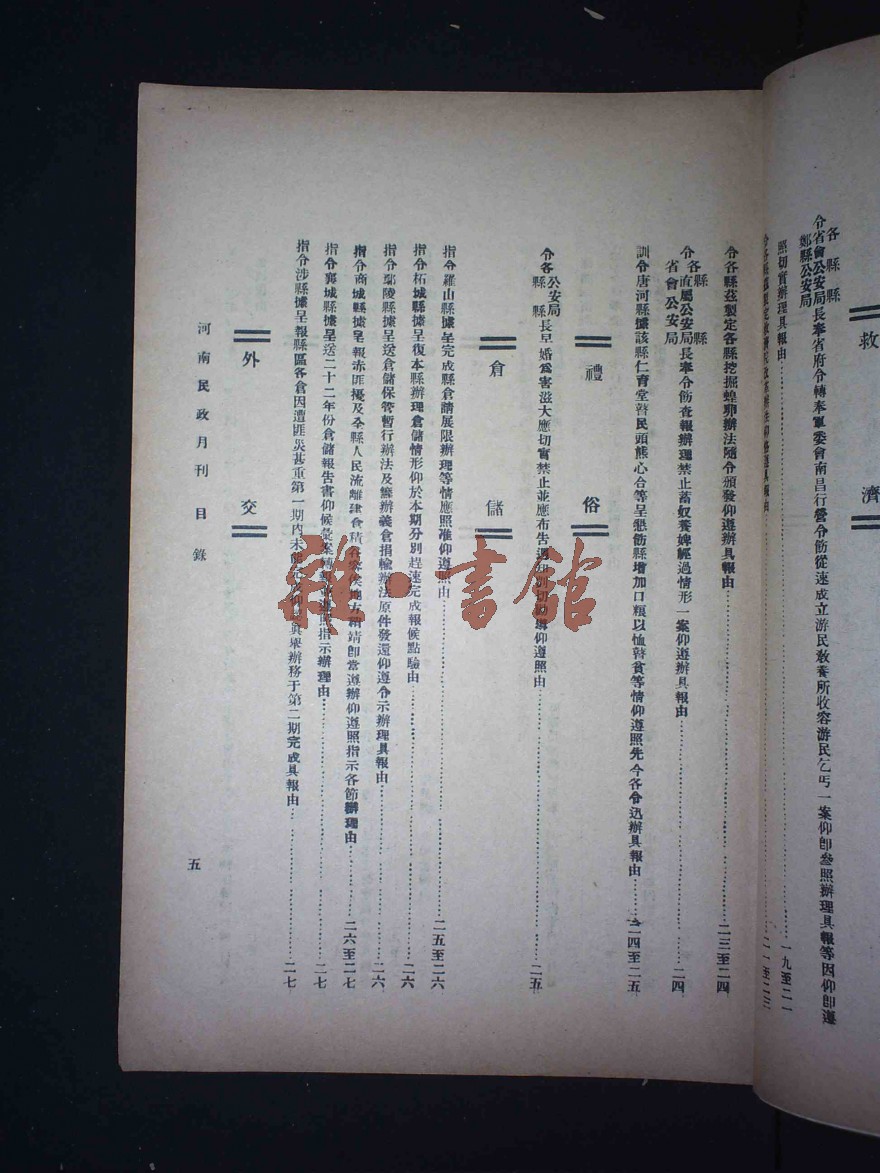 救濟
各縣縣
令省會公安局長奉省府令轉奉軍委會南昌行營令飭從速成立游民教養所收容游民乞丐一案仰卽參照辦理具報等因仰卽遵
鄭縣公安局
照切實辦理具報由 一九至二一
二一至二三
令各縣茲製定各縣挖掘蝗卵辦法隨令頒發仰遵辦具報由 二三至二四
各縣縣
令直屬公安局長奉令飭查報辦理禁止蓄奴養婢經過情形一案仰遵辦具報由 二四
省會公安局
訓令唐河縣據該縣仁育堂瞽民頭熊心合等呈懇飭縣增加口糧以恤瞽貧等情仰遵照先今各令迅辦具報由 二四至二五
禮俗
令各公安局
縣縣長早婚爲害滋大應切實禁止並應布告週知 仰遵照由 二五
倉儲
指令羅山縣據呈完成縣倉請展限辦理等情應照准仰遵照由 二五至二六
指令柘城縣據呈復本縣辦理倉儲情形仰於本期分別趕速完成報候點驗由 二六
指令鄢陵縣據呈送倉儲保管暫行辦法及籌辦義倉捐輸辦法原件發還仰遵令示辦理具報由 二六
指令商城縣據呈報赤匪擾及全縣人民流離建倉積穀 地方稍靖卽當遵辦仰遵照指示各節辦理由 二六至二七
指令襄城縣據呈送二十二年份倉儲報告書仰候彙案轉報並遵照指示辦理由 二七
指令涉縣據呈報縣區各倉因遭匪災甚重第一期內未 舉辦務于第二期完成具報由 二七
外交
河南民政月刊目錄
五
雜·書館